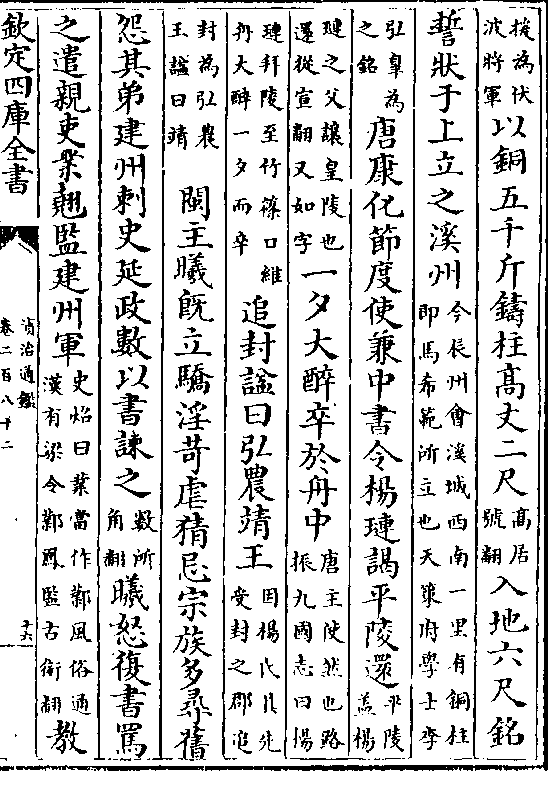 援為伏波將軍以銅五千斤鑄柱高丈二尺高居號翻入地六尺銘
誓狀于上立之溪州今辰州會溪城西南一里有銅柱即馬希範所立也天策府學士李
弘臯為之銘唐康化節度使兼中書令楊璉謁平陵還平陵葢楊
璉之父讓皇陵也還從宣翻又如字一夕大醉卒於舟中唐主使然也路振九國志曰楊
璉拜陵至竹篠口維舟大醉一夕而卒追封諡曰弘農靖王因楊氏其先受封之郡追
封為弘農王諡曰靖 閩主曦既立驕淫苛虐猜忌宗族多尋舊
怨其弟建州刺史延政數以書諫之數所角翻曦怒復書罵
之遣親吏業翹監建州軍史炤曰業當作鄴風俗通漢有梁令鄴鳳監古銜翻教
欽定四庫全書
資治通鑑
卷二百八十二
十六